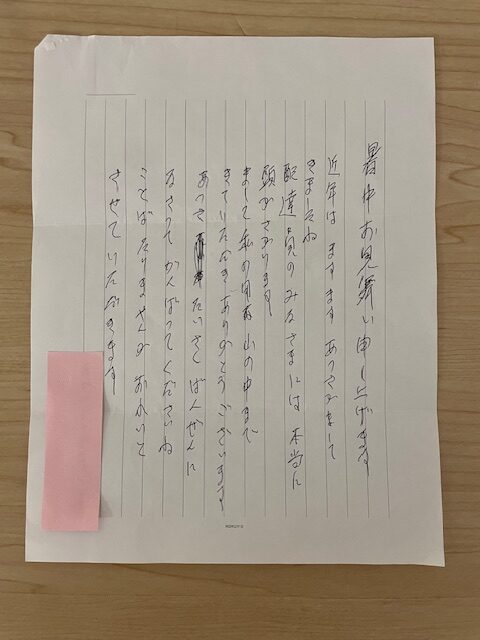 暑中お見舞い申し上げます
近年は ますます あつさがまして
きましたね
配達員の みなさまには 本当に
頭がさがります
まして私の用な山の中まで
きていただき ありがとうございます
あつさ たいさく ばんぜんに
なさって がんばってくださいね
ことばたりませんが おれいと
させていただきます
KOKUYO